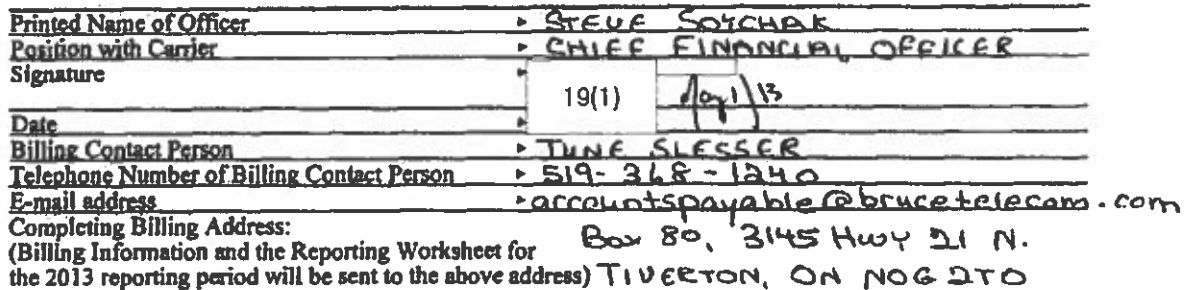 Printed Name of Officer ▸ STEVE SOYCHAK
Position with Carrier ▸ CHIEF FINANCIAL OFFICER
Signature ▸
19(1) May 1/13
Date ▸
Billing Contact Person ▸ JUNE SLESSER
Telephone Number of Billing Contact Person ▸ 519-368-1240
E-mail address ▸ accountspayable@brucetelecom.com
Completing Billing Address:
(Billing Information and the Reporting Worksheet for Box 80, 3145 HWY 21 N.
the 2013 reporting period will be sent to the above address) TIVERTON, ON N0G 2T0